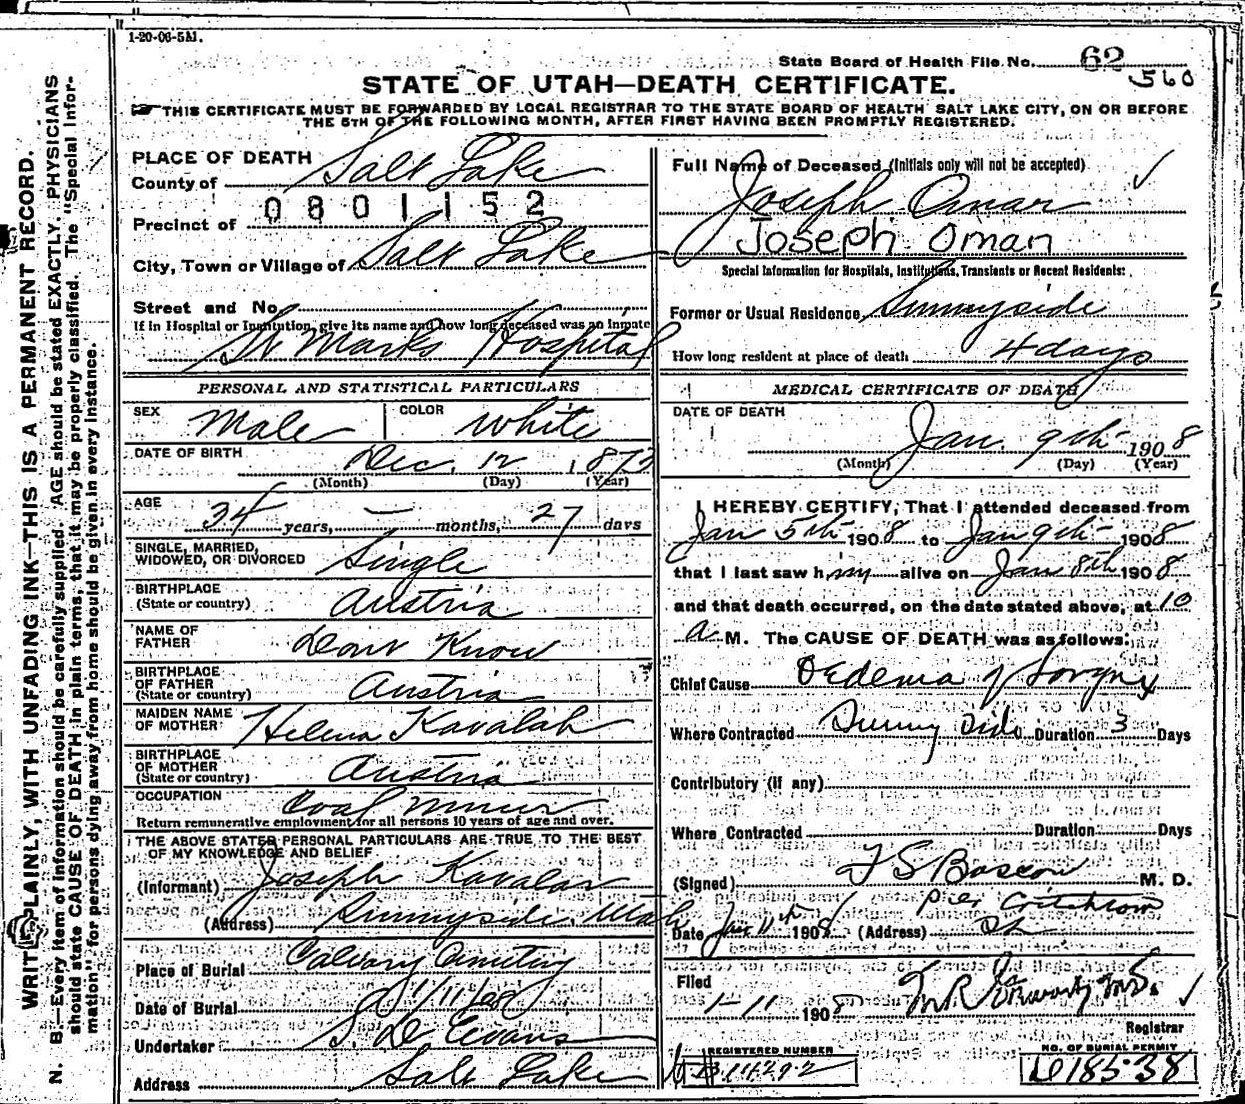 1-20-06-5M.
State Board of Health File No. 62
560
STATE OF UTAH—DEATH CERTIFICATE.
THIS CERTIFICATE MUST BE FORWARDED BY LOCAL REGISTRAR TO THE STATE BOARD OF HEALTH SALT LAKE CITY, ON OR BEFORE
THE 5TH OF THE FOLLOWING MONTH, AFTER FIRST HAVING BEEN PROMPTLY REGISTERED.
WRITE PLAINLY, WITH UNFADING INK—THIS IS A PERMANENT RECORD.
N. B.—Every item of information should be carefully supplied. AGE should be stated EXACTLY. PHYSICIANS
should state CAUSE OF DEATH in plain terms, that it may be properly classified. The "Special Infor-
mation" for persons dying away from home should be given in every instance.
PLACE OF DEATH
County of Salt Lake
0801152
Precinct of
City, Town or Village of Salt Lake
Street and No.
If in Hospital or Institution, give its name and how long deceased was an Inmate
St Marks Hospital
PERSONAL AND STATISTICAL PARTICULARS
SEX Male COLOR White
DATE OF BIRTH Dec. 12 1873
(Month) (Day) (Year)
AGE 34 years, — months, 27 days
SINGLE, MARRIED,
WIDOWED, OR DIVORCED Single
BIRTHPLACE
(State or country) Austria
NAME OF
FATHER Dont Know
BIRTHPLACE
OF FATHER
(State or country) Austria
MAIDEN NAME
OF MOTHER Helena Kavalah
BIRTHPLACE
OF MOTHER
(State or country) Austria
OCCUPATION Coal miner
Return remunerative employment for all persons 10 years of age and over.
THE ABOVE STATED PERSONAL PARTICULARS ARE TRUE TO THE BEST
OF MY KNOWLEDGE AND BELIEF
(Informant) Joseph Kavalar
(Address) Sunnyside Utah
Place of Burial Calvary Cemetery
Date of Burial 1/11/08
Undertaker S. D. Evans
Address Salt Lake
Full Name of Deceased (Initials only will not be accepted)
Joseph Omar
Joseph Oman
Special Information for Hospitals, Institutions, Transients or Recent Residents:
Former or Usual Residence Sunnyside
How long resident at place of death 4 days
MEDICAL CERTIFICATE OF DEATH
DATE OF DEATH
Jan. 9th 1908
(Month) (Day) (Year)
I HEREBY CERTIFY, That I attended deceased from
Jan 5th 1908 to Jan 9th 1908
that I last saw him alive on Jan 8th 1908
and that death occurred, on the date stated above, at 10
a M. The CAUSE OF DEATH was as follows:
Chief Cause Oedema of Larynx
Where Contracted Sunny side Duration 3 Days
Contributory (if any)
Where Contracted Duration Days
(Signed) F S Bascom M. D.
Date Jan 11th 1908 (Address)
Filed
1-11 1908
Registrar
REGISTERED NUMBER
NO. OF BURIAL PERMIT
D18538